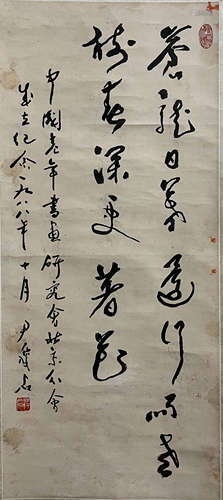 苍龙日暮还行雨老
树春深更著花
中国老年书画研究会北京分会
成立纪念一九八八年十月尹瘦石